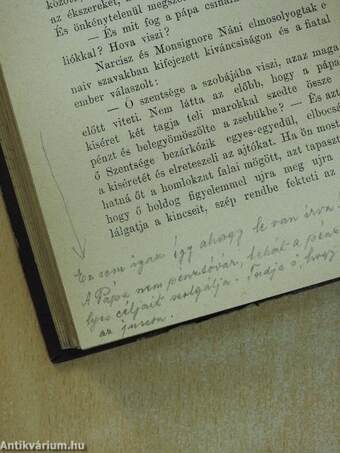 az ékszereket,
És önkénytelenül megszó
— És mit fog a pápa csinál
liókkal? Hova viszi?
Narcisz és Monsignore Náni elmosolyogtak e
naiv szavakban kifejezett kiváncsiságon és a fiatal
ember válaszolt:
— Ő szentsége a szobájába viszi, azaz maga
előtt viteti. Nem látta az előbb, hogy a pápa
kiséret két tagja feli marokkal szedte össze
pénzt és belegyömöszölte a zsebükbe? — És azt
ő Szentsége bezárkózik egyes-egyedül, elbocsá
a kiséretét és elreteszeli az ajtókat. Ha ön most
hatná őt a homlokzat falai mögött, azt tapaszt
hogy ő boldog figyelemmel ujra meg ujra
lálgatja a kincseit, szép rendbe fekteti az
Ez sem igaz így ahogy le van írva
A Pápa nem pénzsóvár, tehát a pénz
lyes céljait szolgálja. Tudja ő, hogy
az juson.
Antikvárium.hu